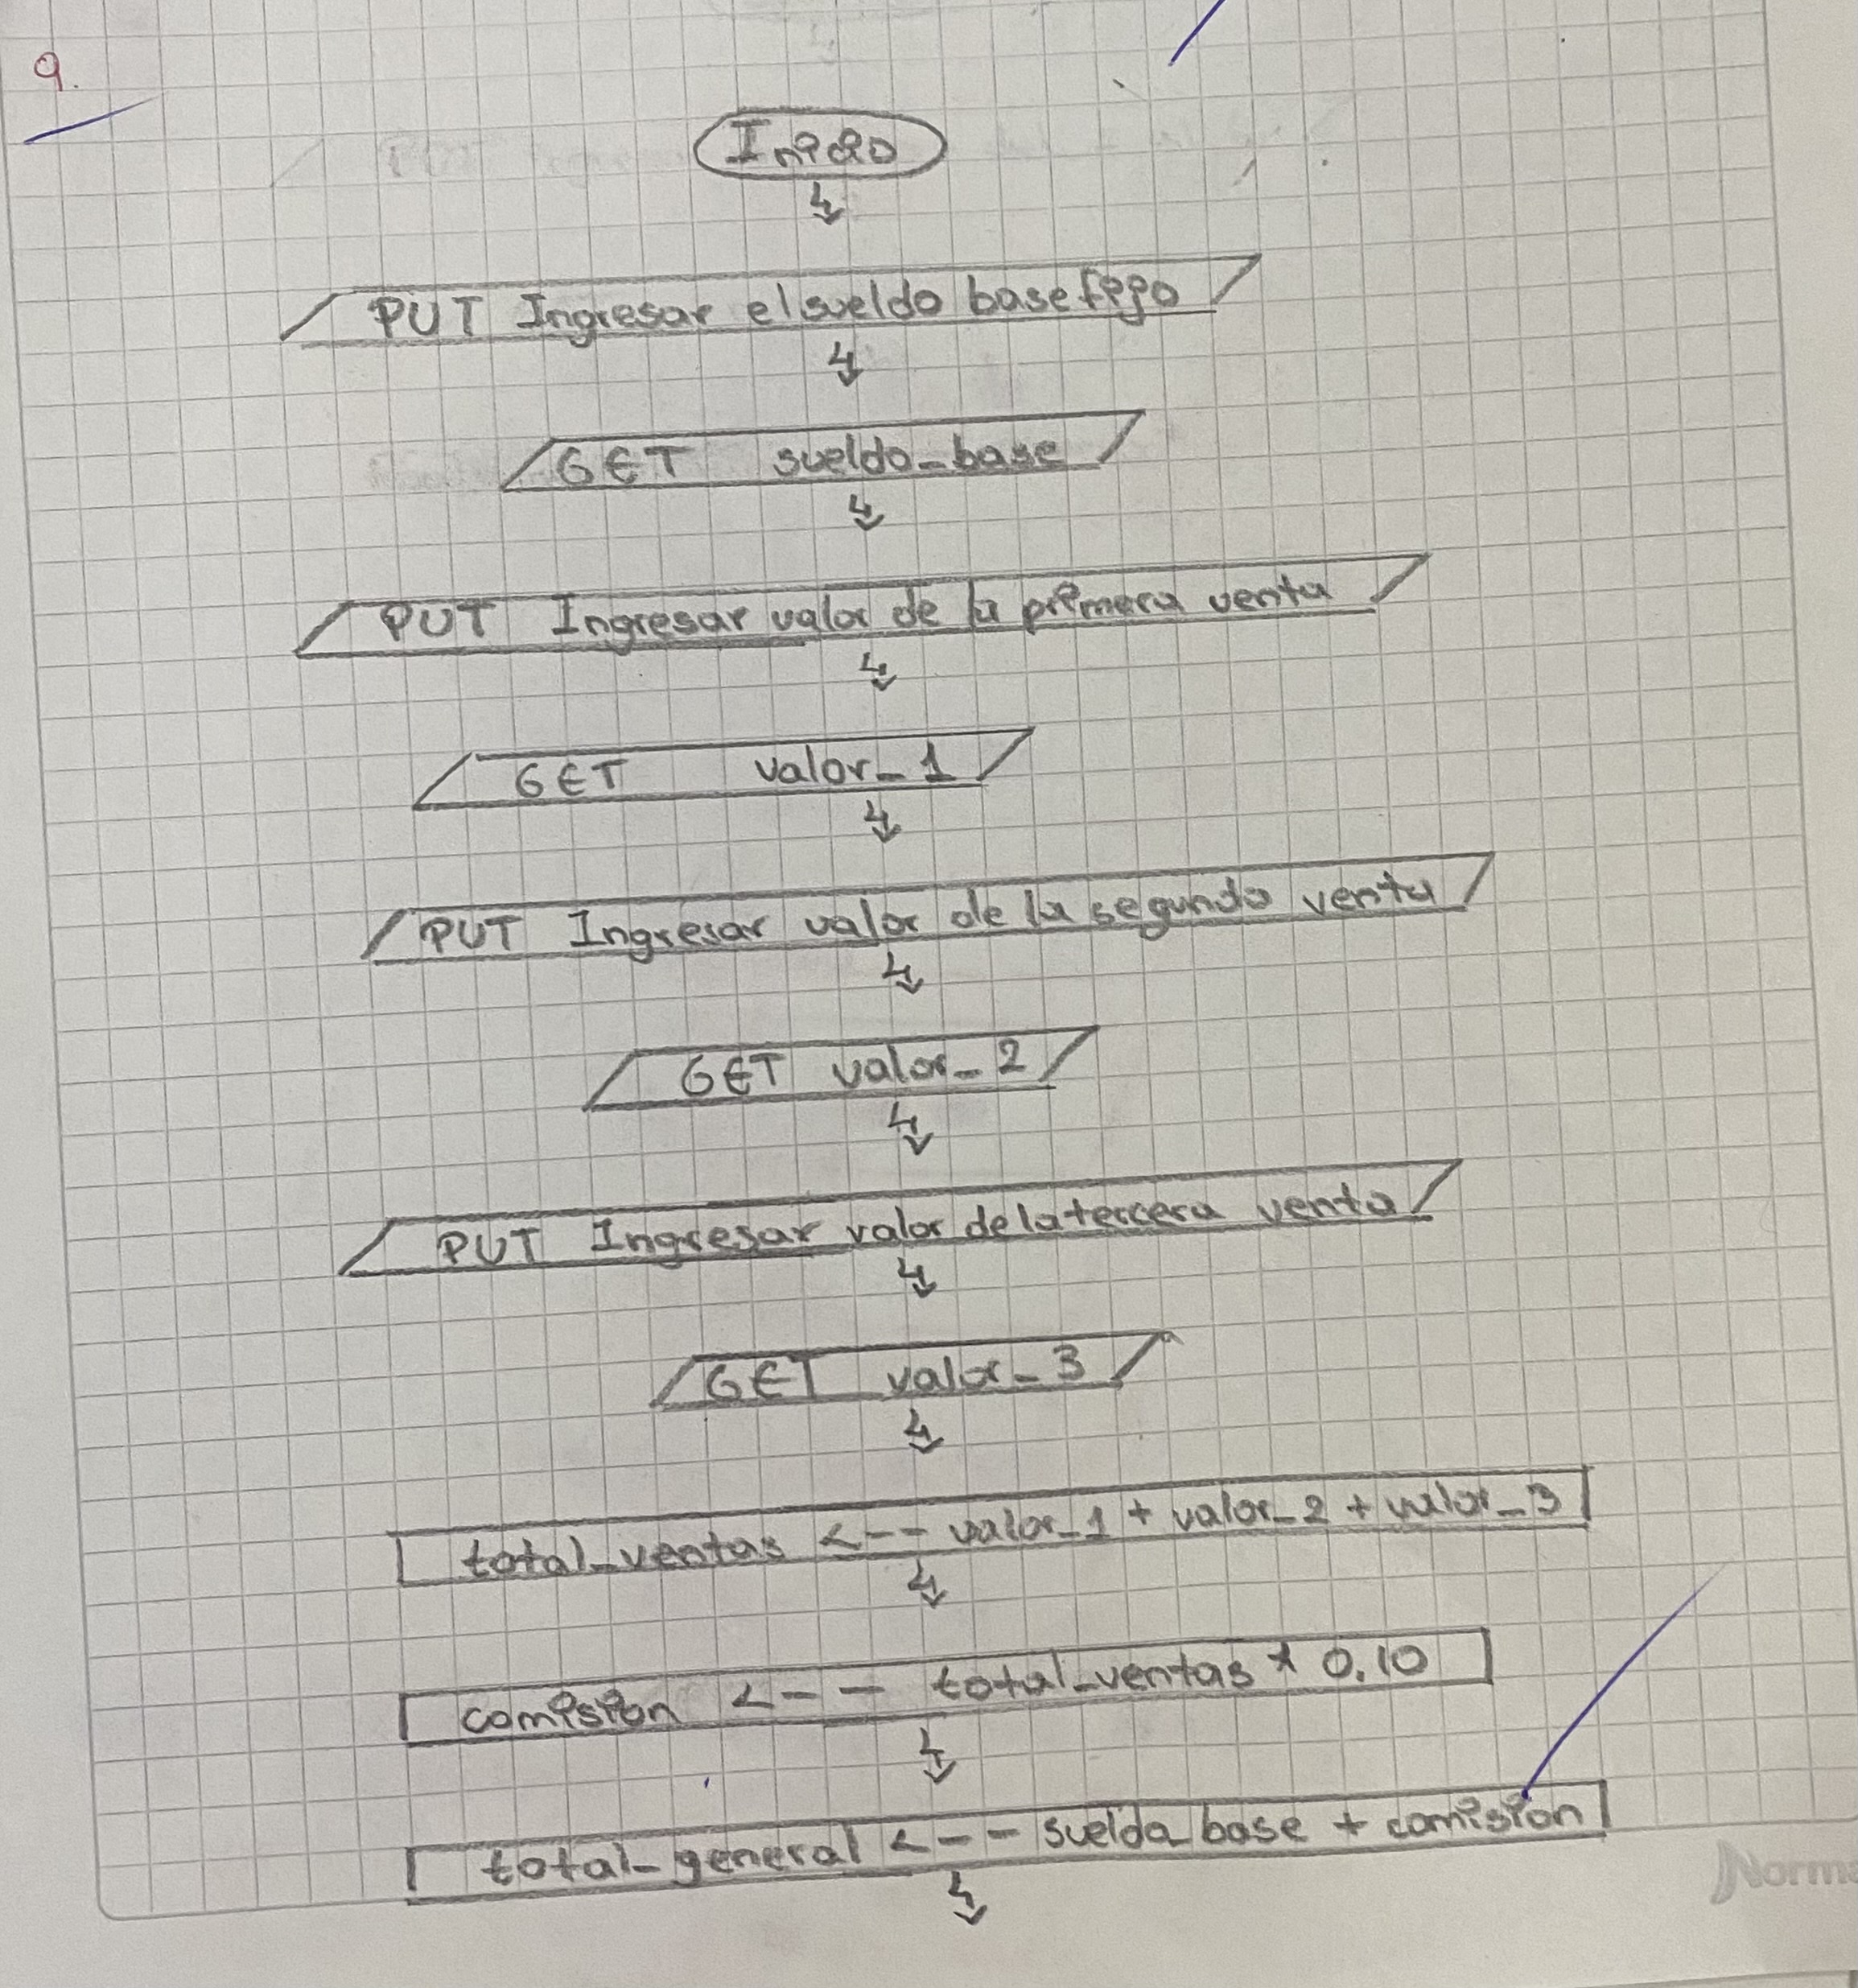 9.
Inicio
PUT Ingresar el sueldo base fijo
GET sueldo_base
PUT Ingresar valor de la primera venta
GET valor_1
PUT Ingresar valor de la segunda venta
GET valor_2
PUT Ingresar valor de la tercera venta
GET valor_3
total_ventas <-- valor_1 + valor_2 + valor_3
comisión <-- total_ventas * 0.10
total_general <-- sueldo_base + comisión
Norma